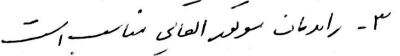 ۳- راندمان موتور القائی مناسب است